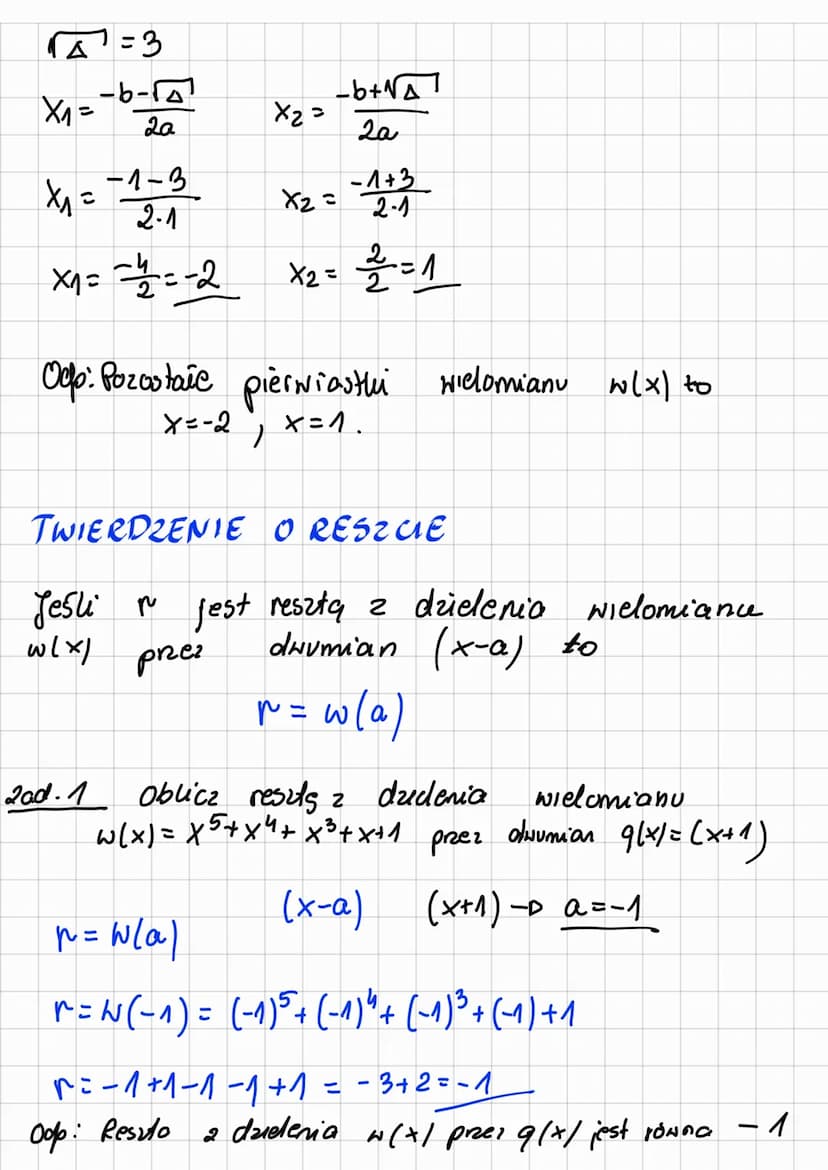 √Δ = 3
x₁ = (-b-√Δ)/2a x₂ = (-b+√Δ)/2a
x₁ = (-1-3)/(2·1) x₂ = (-1+3)/(2·1)
x₁ = -4/2 = -2 x₂ = 2/2 = 1
Odp: Pozostałe pierwiastki wielomianu w(x) to
x=-2 , x=1.
TWIERDZENIE O RESZCIE
Jeśli r jest resztą z dzielenia wielomianu
w(x) przez dwumian (x-a) to
r = w(a)
Zad. 1 Oblicz resztę z dzielenia wielomianu
w(x) = x⁵+x⁴+x³+x+1 przez dwumian q(x) = (x+1)
(x-a) (x+1) → a=-1
r = W(a)
r = W(-1) = (-1)⁵+(-1)⁴+(-1)³+(-1)+1
r = -1+1-1-1+1 = -3+2 = -1
Odp: Reszta z dzielenia w(x) przez q(x) jest równa -1